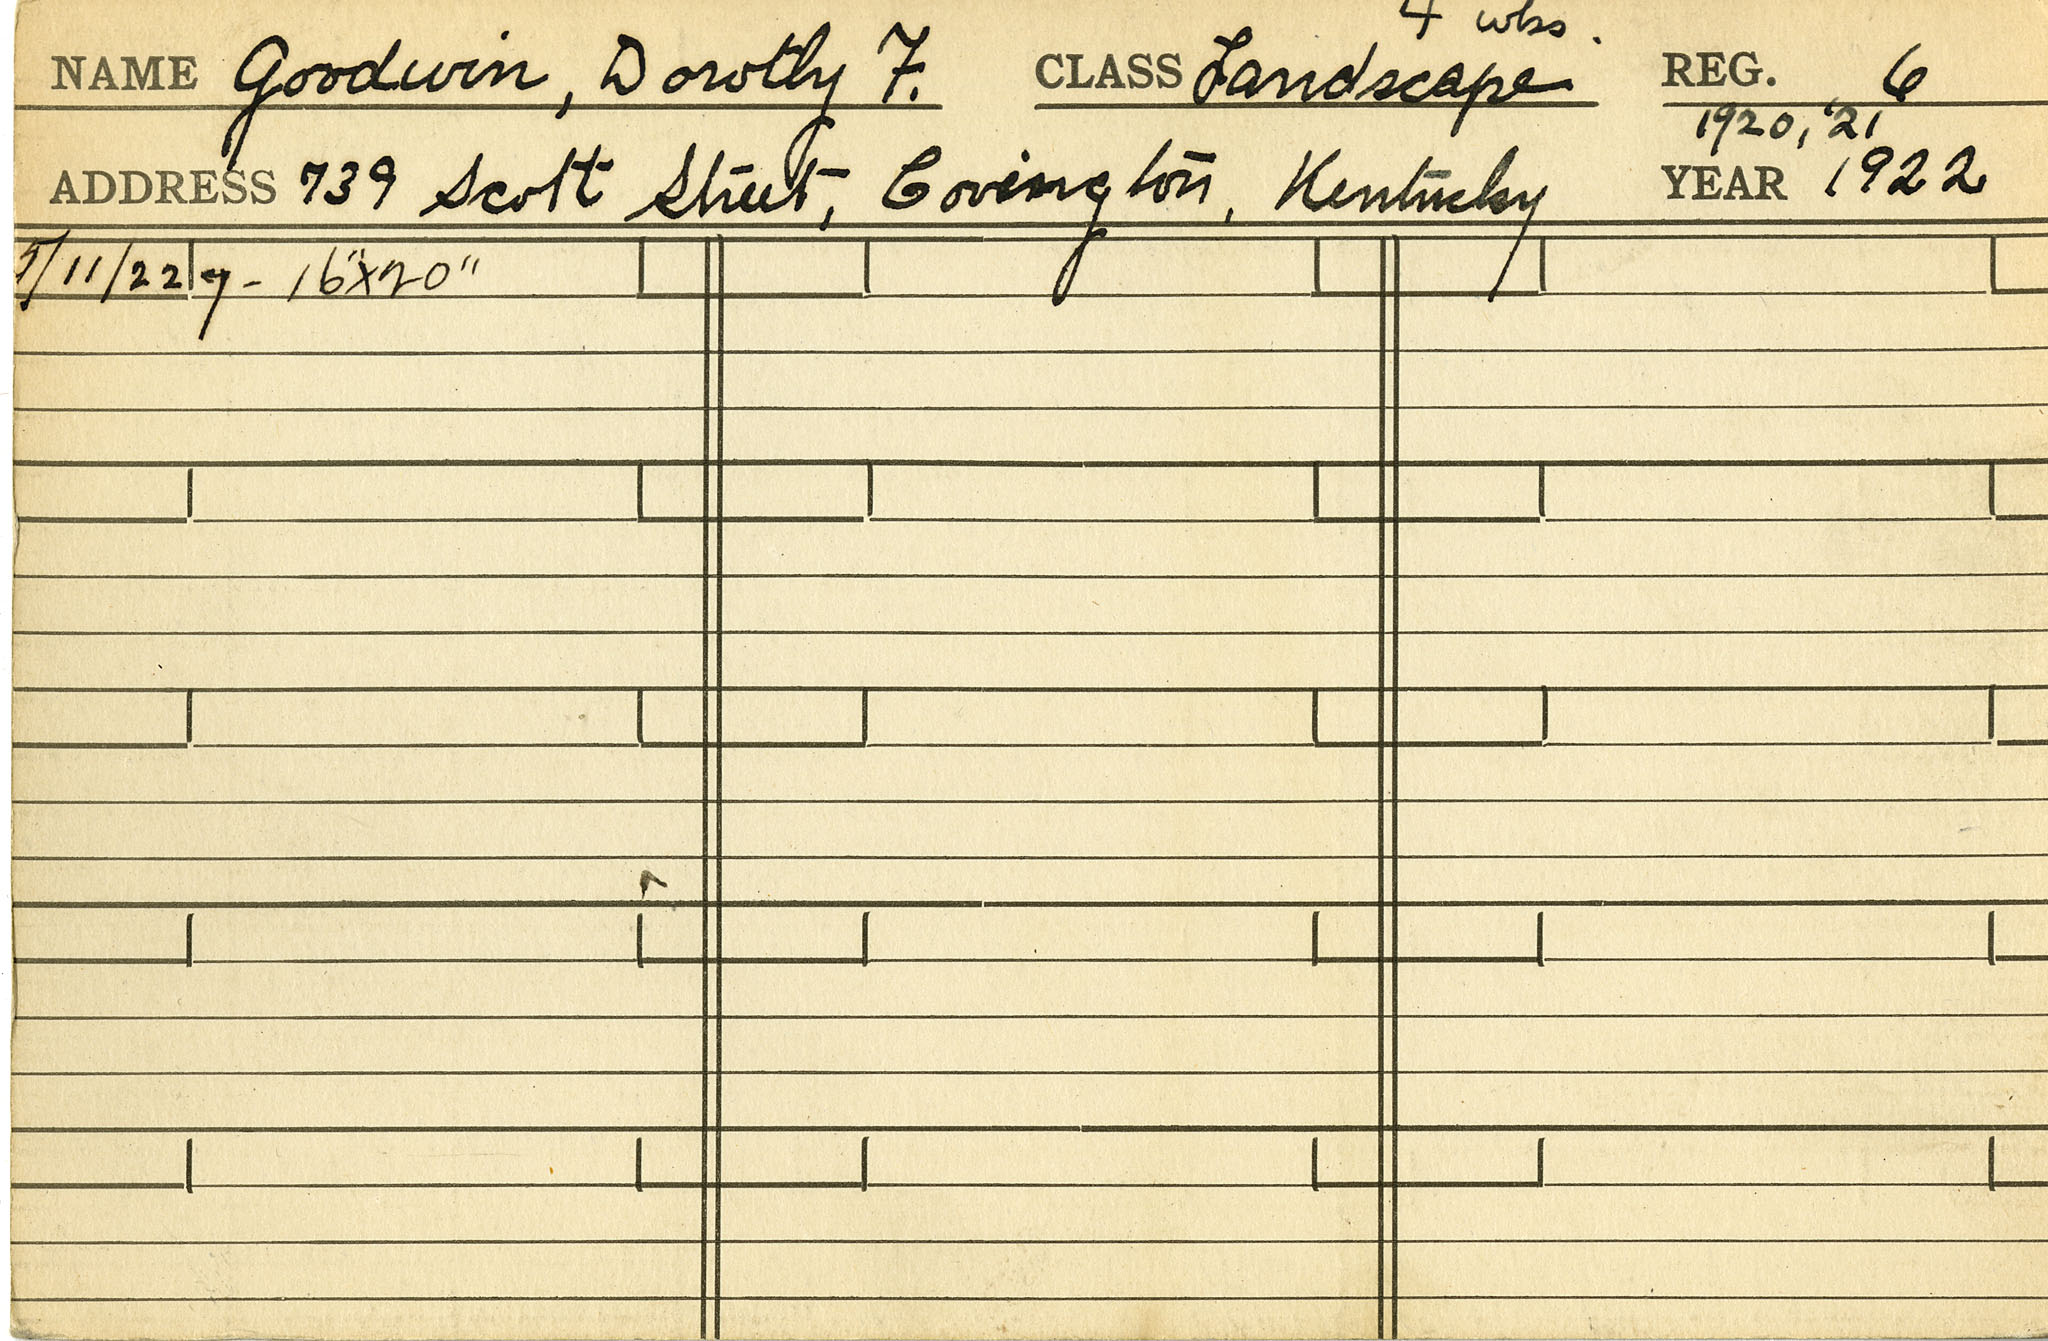 4 wks.
NAME Goodwin, Dorothy F. CLASS Landscape REG. 6
1920, '21
ADDRESS 739 Scott Street, Covington, Kentucky YEAR 1922
/11/22 7 - 16"x20"